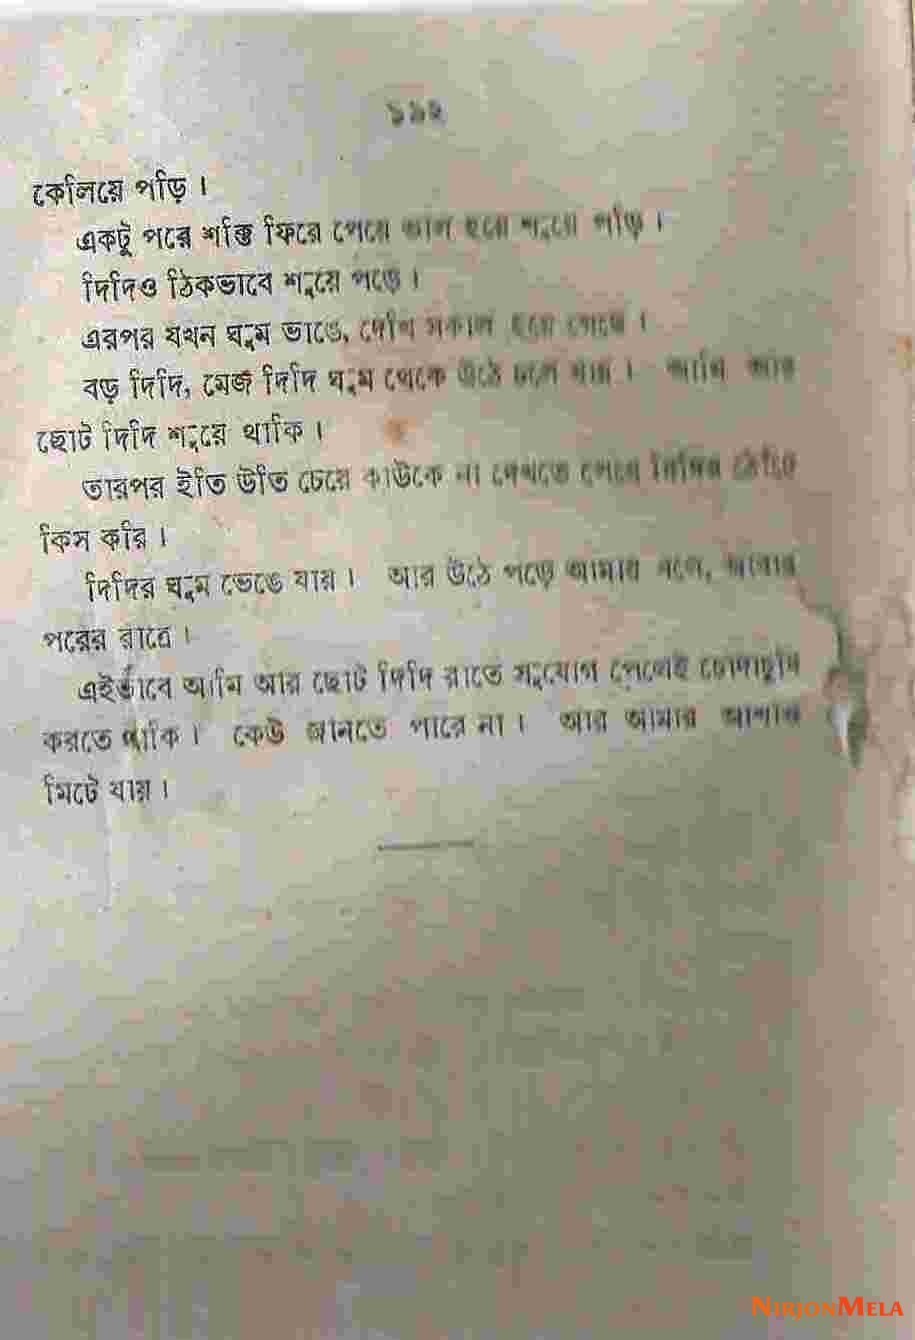 ১১২
কেলিয়ে পড়ি ।
একটু পরে শক্তি ফিরে পেয়ে ভাল হয়ে শুয়ে পড়ি ।
দিদিও ঠিকভাবে শুয়ে পড়ে ।
এরপর যখন ঘুম ভাঙে, দেখি সকাল হয়ে গেছে ।
বড় দিদি, মেজ দিদি ঘুম থেকে উঠে চলে যায় । আমি আর
ছোট দিদি শুয়ে থাকি ।
তারপর ইতি উতি চেয়ে কাউকে না দেখতে পেয়ে দিদির ঠোঁটে
কিস করি ।
দিদির ঘুম ভেঙে যায় । আর উঠে পড়ে আমায় বলে, আবার
পরের রাত্রে ।
এইভাবে আমি আর ছোট দিদি রাতে সুযোগ পেলেই চোদাচুদি
করতে থাকি । কেউ জানতে পারে না । আর আমার আশাও
মিটে যায় ।
NIRJONMELA